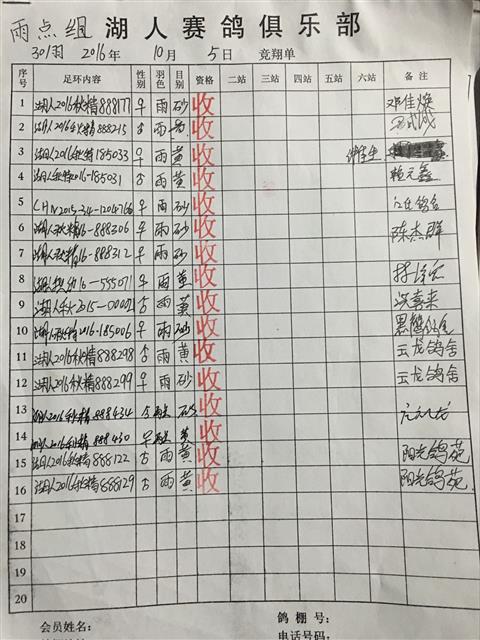 雨点组 湖人赛鸽俱乐部
301羽 2016年 10月 5日 竞翔单
序号 足环内容 性别 羽色 目别 资格 二站 三站 四站 五站 六站 备注
1 湖人2016秋精888177 雨 砂 收 邓佳焕
2 湖人2016秋精888215 雨 黄 收
3 湖人2016秋精185033 雨 黄 收
4 2016-185031 雨 黄 收 赖元鑫
5 CHN2015-34-1204766 雨 砂 收
6 湖人秋精16-888306 雨 砂 收 陈杰群
7 湖人秋精16-888312 雨 砂 收
8 16-555071 雨 黄 收
9 湖人秋2015-00002 雨 黄 收 洪喜来
10 湖人秋精2016-185006 雨 砂 收
11 湖人2016秋精888298 雨 黄 收 云龙鸽舍
12 湖人2016秋精888299 雨 砂 收 云龙鸽舍
13 湖人2016秋精888434 砂 收
14 湖人2016秋精888430 黄 收
15 湖人2016秋精888122 雨 黄 收 阳光鸽苑
16 湖人2016秋精888129 雨 黄 收 阳光鸽苑
17
18
19
20
会员姓名: 鸽棚号:
电话号码: